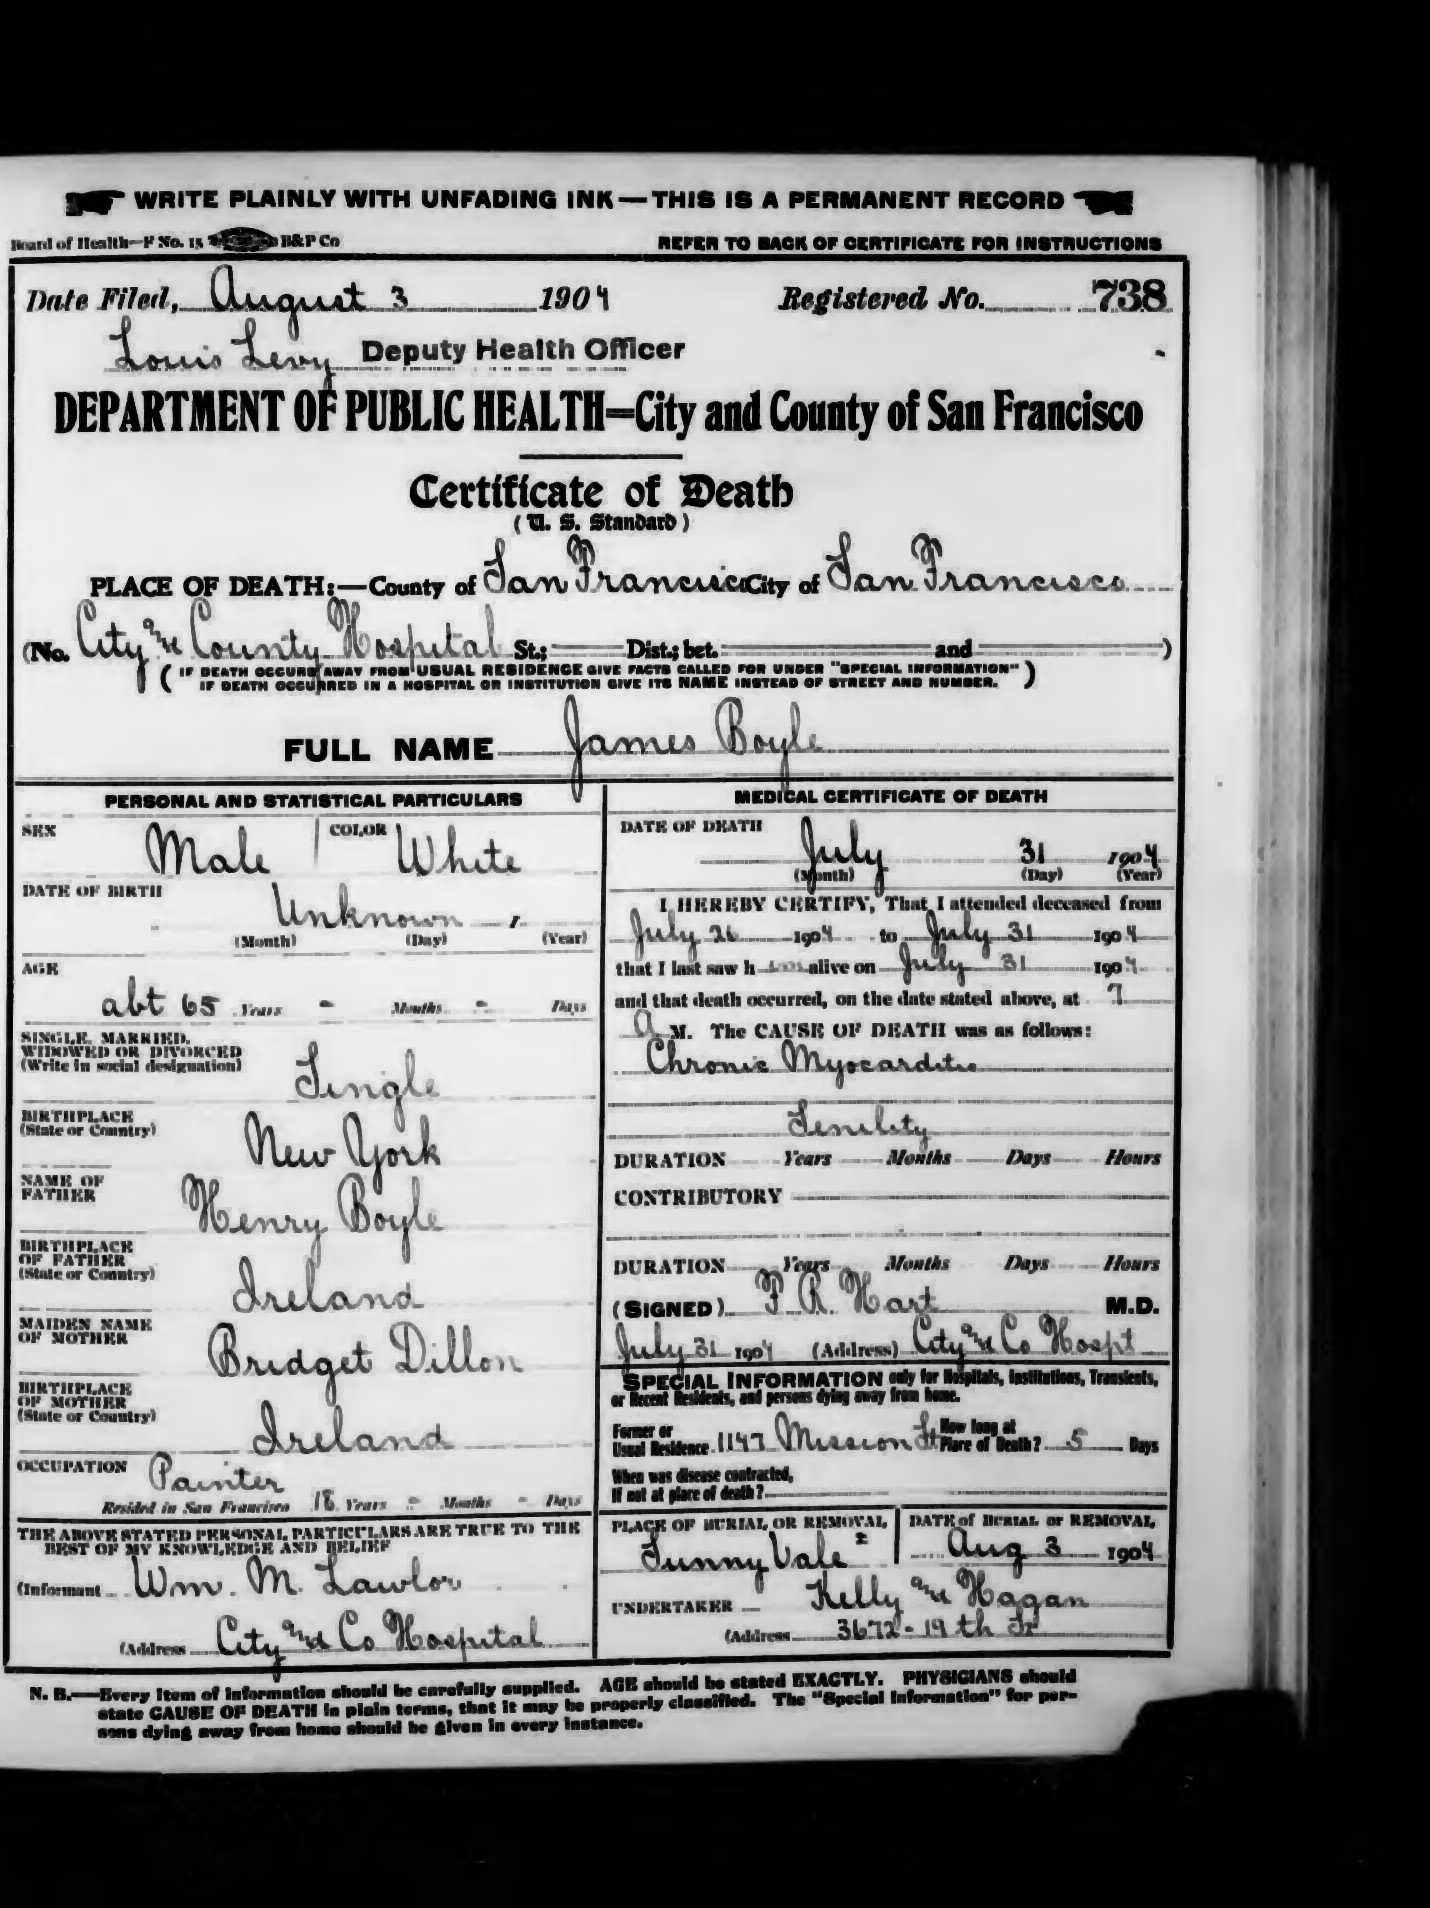 WRITE PLAINLY WITH UNFADING INK—THIS IS A PERMANENT RECORD
Board of Health—F No. 15 B&P Co
REFER TO BACK OF CERTIFICATE FOR INSTRUCTIONS
Date Filed, August 3 1904 Registered No. 738
Louis Levy Deputy Health Officer
DEPARTMENT OF PUBLIC HEALTH=City and County of San Francisco
Certificate of Death
(U. S. Standard)
PLACE OF DEATH:—County of San Francisco City of San Francisco
(No. City and County Hospital St.; Dist.; bet. and )
( IF DEATH OCCURS AWAY FROM USUAL RESIDENCE GIVE FACTS CALLED FOR UNDER "SPECIAL INFORMATION" )
( IF DEATH OCCURRED IN A HOSPITAL OR INSTITUTION GIVE ITS NAME INSTEAD OF STREET AND NUMBER. )
FULL NAME James Boyle
PERSONAL AND STATISTICAL PARTICULARS
SEX Male COLOR White
DATE OF BIRTH
Unknown
(Month) (Day) (Year)
AGE
abt 65 Years - Months - Days
SINGLE, MARRIED,
WIDOWED OR DIVORCED
(Write in social designation)
Single
BIRTHPLACE
(State or Country)
New York
NAME OF
FATHER
Henry Boyle
BIRTHPLACE
OF FATHER
(State or Country)
Ireland
MAIDEN NAME
OF MOTHER
Bridget Dillon
BIRTHPLACE
OF MOTHER
(State or Country)
Ireland
OCCUPATION Painter
Resided in San Francisco 18 Years - Months - Days
THE ABOVE STATED PERSONAL PARTICULARS ARE TRUE TO THE
BEST OF MY KNOWLEDGE AND BELIEF
(Informant Wm. M. Lawlor
(Address City and Co Hospital
MEDICAL CERTIFICATE OF DEATH
DATE OF DEATH
July 31 1904
(Month) (Day) (Year)
I HEREBY CERTIFY, That I attended deceased from
July 26 1904 to July 31 1904
that I last saw h im alive on July 31 1904
and that death occurred, on the date stated above, at 7
A M. The CAUSE OF DEATH was as follows:
Chronic Myocarditis
Senility
DURATION Years Months Days Hours
CONTRIBUTORY
DURATION Years Months Days Hours
(SIGNED) F. R. Hart M.D.
July 31 1904 (Address) City and Co Hospt
SPECIAL INFORMATION only for Hospitals, Institutions, Transients,
or Recent Residents, and persons dying away from home.
Former or
Usual Residence 1147 Mission St How long at
Place of Death? 5 Days
When was disease contracted,
If not at place of death?
PLACE OF BURIAL OR REMOVAL
Sunny Vale
DATE of BURIAL or REMOVAL
Aug 3 1904
UNDERTAKER Kelly and Hagan
(Address 3672-19th St
N. B.—Every item of information should be carefully supplied. AGE should be stated EXACTLY. PHYSICIANS should
state CAUSE OF DEATH in plain terms, that it may be properly classified. The "Special Information" for per-
sons dying away from home should be given in every instance.